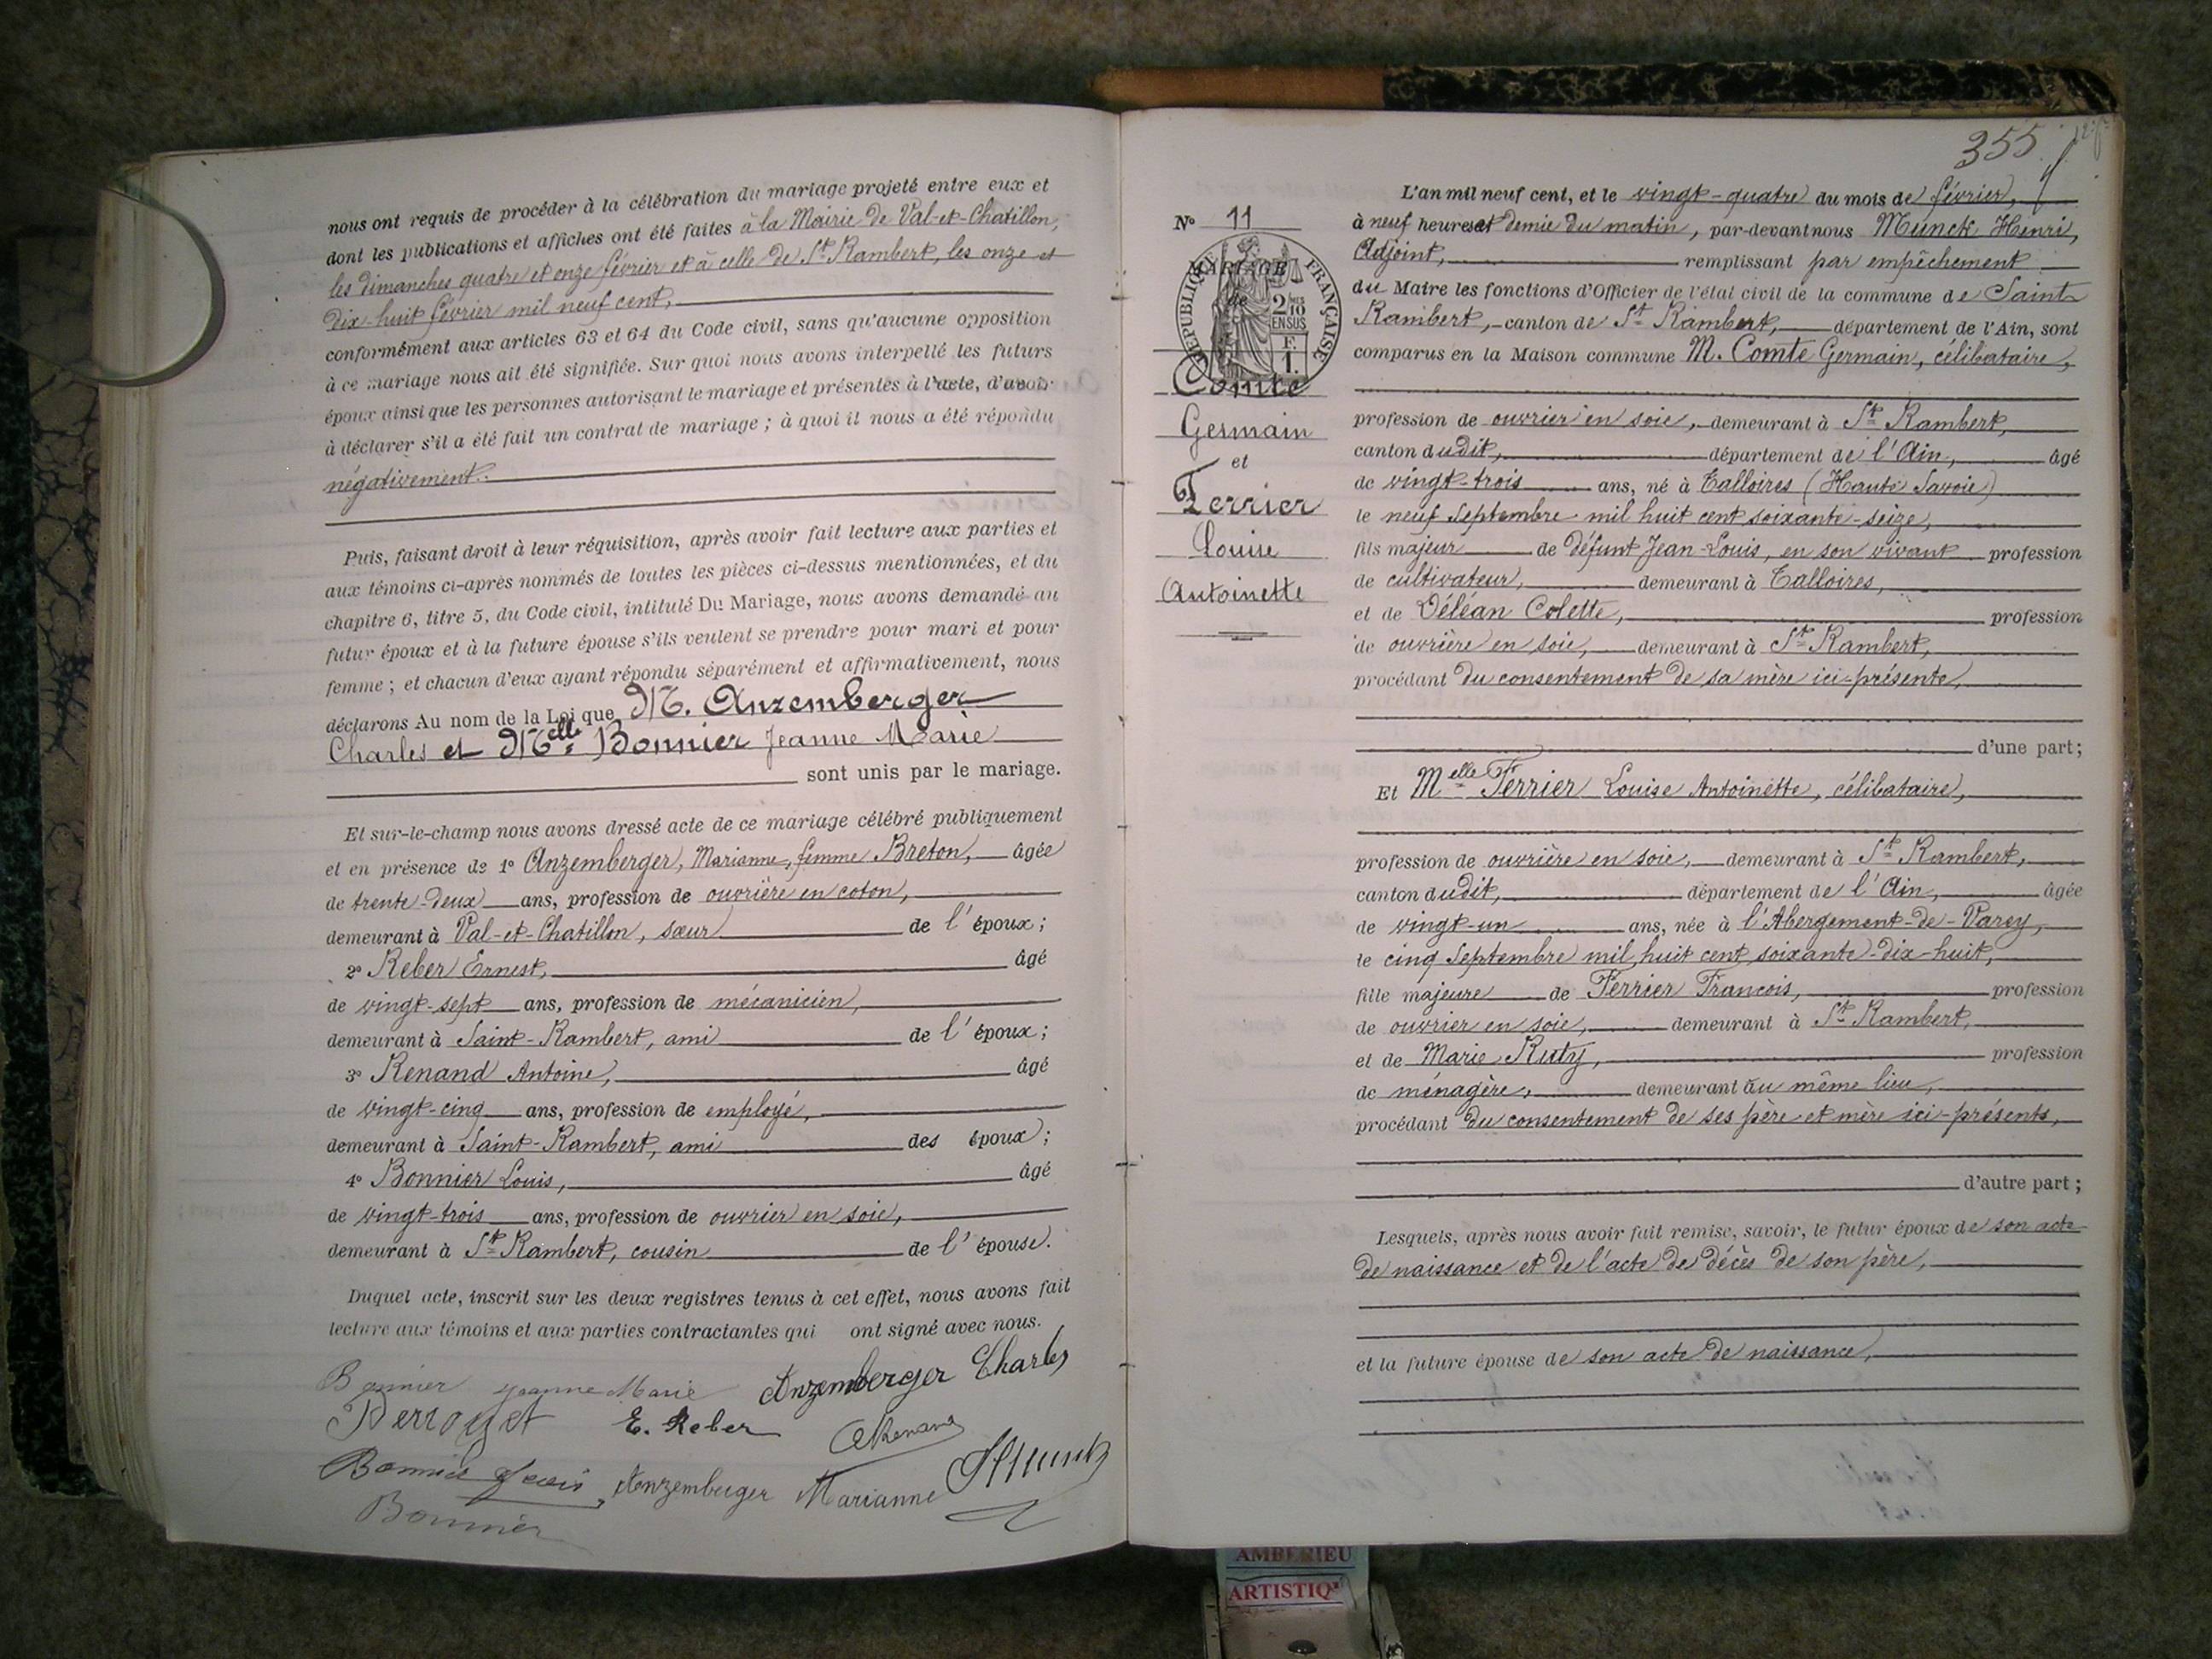 nous ont requis de procéder à la célébration du mariage projeté entre eux et
dont les publications et affiches ont été faites à la Mairie de Val-et-Chatillon,
les dimanches quatre et onze février et à celle de St Rambert, les onze et
dix-huit février mil neuf cent,
conformément aux articles 63 et 64 du Code civil, sans qu'aucune opposition
à ce mariage nous ait été signifiée. Sur quoi nous avons interpellé les futurs
époux ainsi que les personnes autorisant le mariage et présentes à l'acte, d'avoir
à déclarer s'il a été fait un contrat de mariage ; à quoi il nous a été répondu
négativement.
Puis, faisant droit à leur réquisition, après avoir fait lecture aux parties et
aux témoins ci-après nommés de toutes les pièces ci-dessus mentionnées, et du
chapitre 6, titre 5, du Code civil, intitulé Du Mariage, nous avons demandé au
futur époux et à la future épouse s'ils veulent se prendre pour mari et pour
femme ; et chacun d'eux ayant répondu séparément et affirmativement, nous
déclarons Au nom de la Loi que M. Anzemberger
Charles et Melle Bonnier Jeanne Marie
sont unis par le mariage.
Et sur-le-champ nous avons dressé acte de ce mariage célébré publiquement
et en présence de 1° Anzemberger, Marianne, femme Breton, âgée
de trente-deux ans, profession de ouvrière en coton,
demeurant à Val-et-Chatillon, sœur de l'époux ;
2° Reber Ernest, âgé
de vingt-sept ans, profession de mécanicien,
demeurant à Saint-Rambert, ami de l'époux ;
3° Renand Antoine, âgé
de vingt-cinq ans, profession de employé,
demeurant à Saint-Rambert, ami des époux ;
4° Bonnier Louis, âgé
de vingt-trois ans, profession de ouvrier en soie,
demeurant à St Rambert, cousin de l'épouse.
Duquel acte, inscrit sur les deux registres tenus à cet effet, nous avons fait
lecture aux témoins et aux parties contractantes qui ont signé avec nous.
Bonnier Jeanne Marie Anzemberger Charles
E. Reber Renand
Bonnier Louis Anzemberger Marianne HMunck
Bonnier
355
N° 11
RÉPUBLIQUE FRANÇAISE
2/10 EN SUS
F. 1.
MARIAGE
de
Comte
Germain
et
Ferrier
Louise
Antoinette
L'an mil neuf cent, et le vingt-quatre du mois de février,
à neuf heures et demie du matin, par-devant nous Munck Henri,
Adjoint, remplissant par empêchement
du Maire les fonctions d'Officier de l'état civil de la commune de Saint-
Rambert, canton de St Rambert, département de l'Ain, sont
comparus en la Maison commune M. Comte Germain, célibataire,
profession de ouvrier en soie, demeurant à St Rambert,
canton dudit, département de l'Ain, âgé
de vingt-trois ans, né à Talloires (Haute Savoie)
le neuf Septembre mil huit cent soixante-seize,
fils majeur de défunt Jean-Louis, en son vivant profession
de cultivateur, demeurant à Talloires,
et de Déléan Colette, profession
de ouvrière en soie, demeurant à St Rambert,
procédant du consentement de sa mère ici-présente,
d'une part ;
Et Melle Ferrier Louise Antoinette, célibataire,
profession de ouvrière en soie, demeurant à St Rambert,
canton dudit, département de l'Ain, âgée
de vingt-un ans, née à l'Abergement-de-Varey,
le cinq Septembre mil huit cent soixante-dix-huit,
fille majeure de Ferrier François, profession
de ouvrier en soie, demeurant à St Rambert,
et de Marie Ruty, profession
de ménagère, demeurant au même lieu,
procédant du consentement de ses père et mère ici-présents,
d'autre part ;
Lesquels, après nous avoir fait remise, savoir, le futur époux de son acte
de naissance et de l'acte de décès de son père,
et la future épouse de son acte de naissance,
AMBERIEU
ARTISTIQ